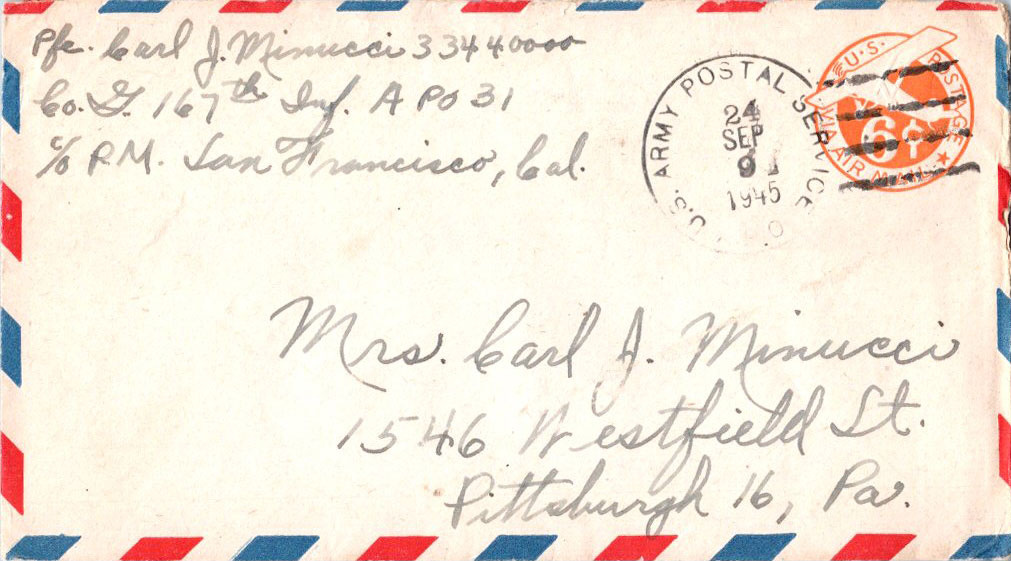 Pfc. Carl J. Minucci 33440000
Co. G. 167th Inf. APO 31
c/o P.M. San Francisco, Cal.
U.S. ARMY POSTAL SERVICE
24
SEP
9
1945
U.S. POSTAGE
6¢
VIA AIR MAIL
Mrs. Carl J. Minucci
1546 Westfield St.
Pittsburgh 16, Pa.